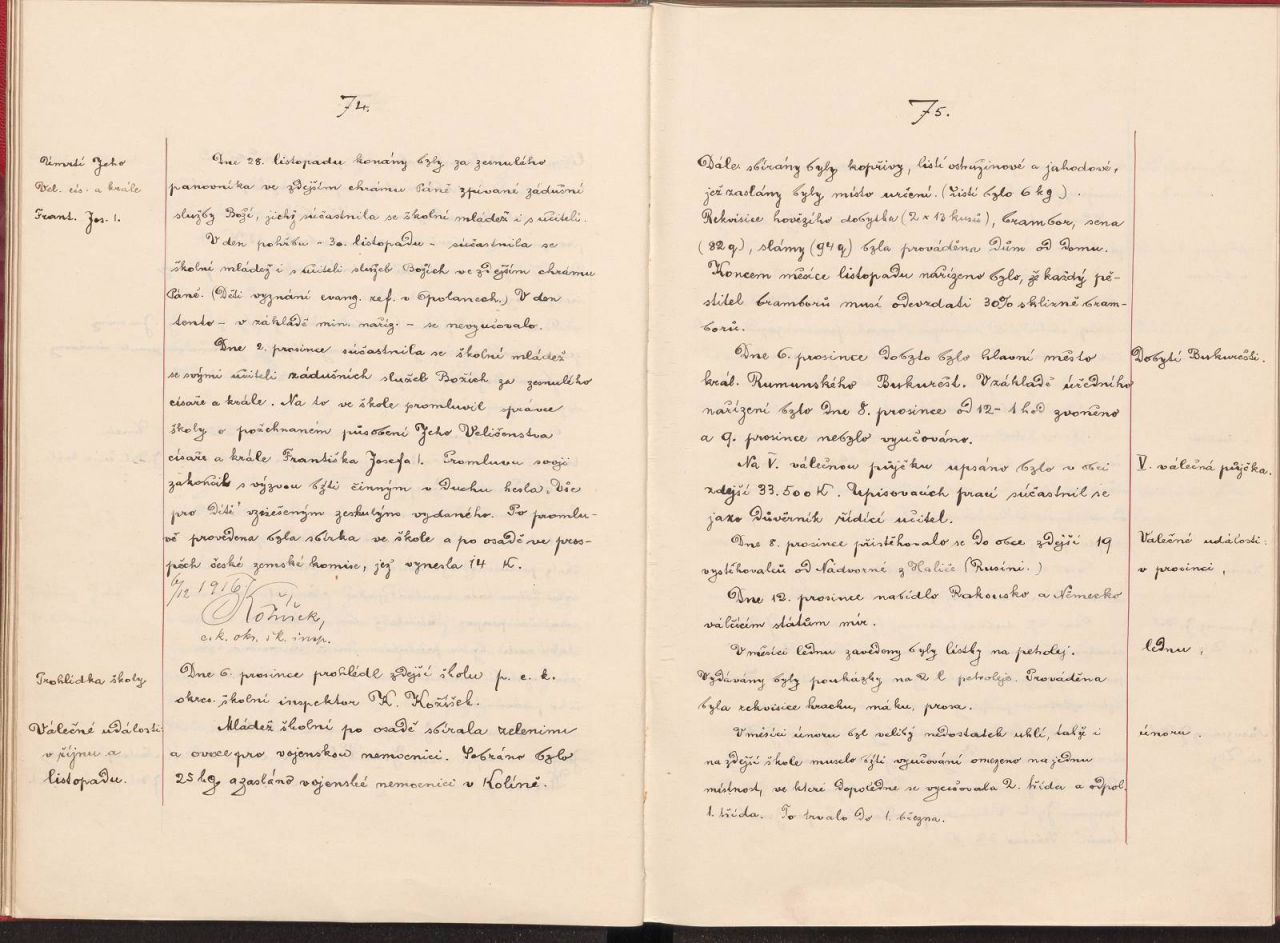 74.
Úmrtí Jeho
Vel. cís. a krále
Frant. Jos. I.
Dne 28. listopadu konány byly za zesnulého
panovníka ve zdejším chrámu Páně zpívané zádušní
služby Boží, jichž súčastnila se školní mládež i s učiteli.
V den pohřbu – 30. listopadu – súčastnila se
školní mládež i s učiteli služeb Božích ve zdejším chrámu
Páně. (Děti vyznání evang. ref. v Opolanech.) V den
tento – v základě min. naříz. – se nevyučovalo.
Dne 2. prosince súčastnila se školní mládež
se svými učiteli zádušních služeb Božích za zesnulého
císaře a krále. Na to ve škole promluvil správce
školy o požehnaném působení Jeho Veličenstva
císaře a krále Františka Josefa I. Promluvu svoji
zakončil s výzvou býti činným v duchu hesla „Vše
pro dítě" vznešeným zesnulým vydaného. Po promlu-
vě provedena byla sbírka ve škole a po osadě ve pros-
pěch české zemské komise, jež vynesla 14 K.
6/12 1916
Kožíšek,
c. k. okr. šk. insp.
Prohlídka školy
Dne 6. prosince prohlédl zdejší školu p. c. k.
okres. školní inspektor K. Kožíšek.
Válečné události
v říjnu a
listopadu.
Mládež školní po osadě sbírala zeleninu
a ovoce pro vojenskou nemocnici. Sebráno bylo
25 kg a zasláno vojenské nemocnici v Kolíně.
75.
Dále sbírány byly kopřivy, listí ostružinové a jahodové,
jež zaslány byly místo určení. (Listí bylo 6 kg.)
Rekvisice hovězího dobytka (2 × 13 kusů), brambor, sena
(82 q), slámy (94 q) byla prováděna dům od domu.
Koncem měsíce listopadu nařízeno bylo, že každý pě-
stitel bramborů musí odevzdati 30% sklizně bram-
borů.
Dobytí Bukurešti.
Dne 6. prosince dobyto bylo hlavní město
král. Rumunského Bukurešt. V základě úředního
nařízení bylo dne 8. prosince od 12 – 1 hod zvoněno
a 9. prosince nebylo vyučováno.
V. válečná půjčka.
Na V. válečnou půjčku upsáno bylo v obci
zdejší 33.500 K. Upisovacích prací súčastnil se
jako důvěrník řídící učitel.
Válečné události:
v prosinci,
Dne 8. prosince přistěhovalo se do obce zdejší 19
vystěhovalců od Nadvorné z Haliče (Rusíni.)
Dne 12. prosince nabídlo Rakousko a Německo
válčícím státům mír.
lednu,
V měsíci lednu zavedeny byly lístky na petrolej.
Vydávány byly poukázky na 2 l petroleje. Prováděna
byla rekvisice hrachu, máku, prosa.
únoru.
V měsíci únoru byl veliký nedostatek uhlí, takž i
na zdejší škole muselo býti vyučování omezeno na jednu
místnost, ve které dopoledne se vyučovala 2. třída a odpol.
1. třída. To trvalo do 1. března.